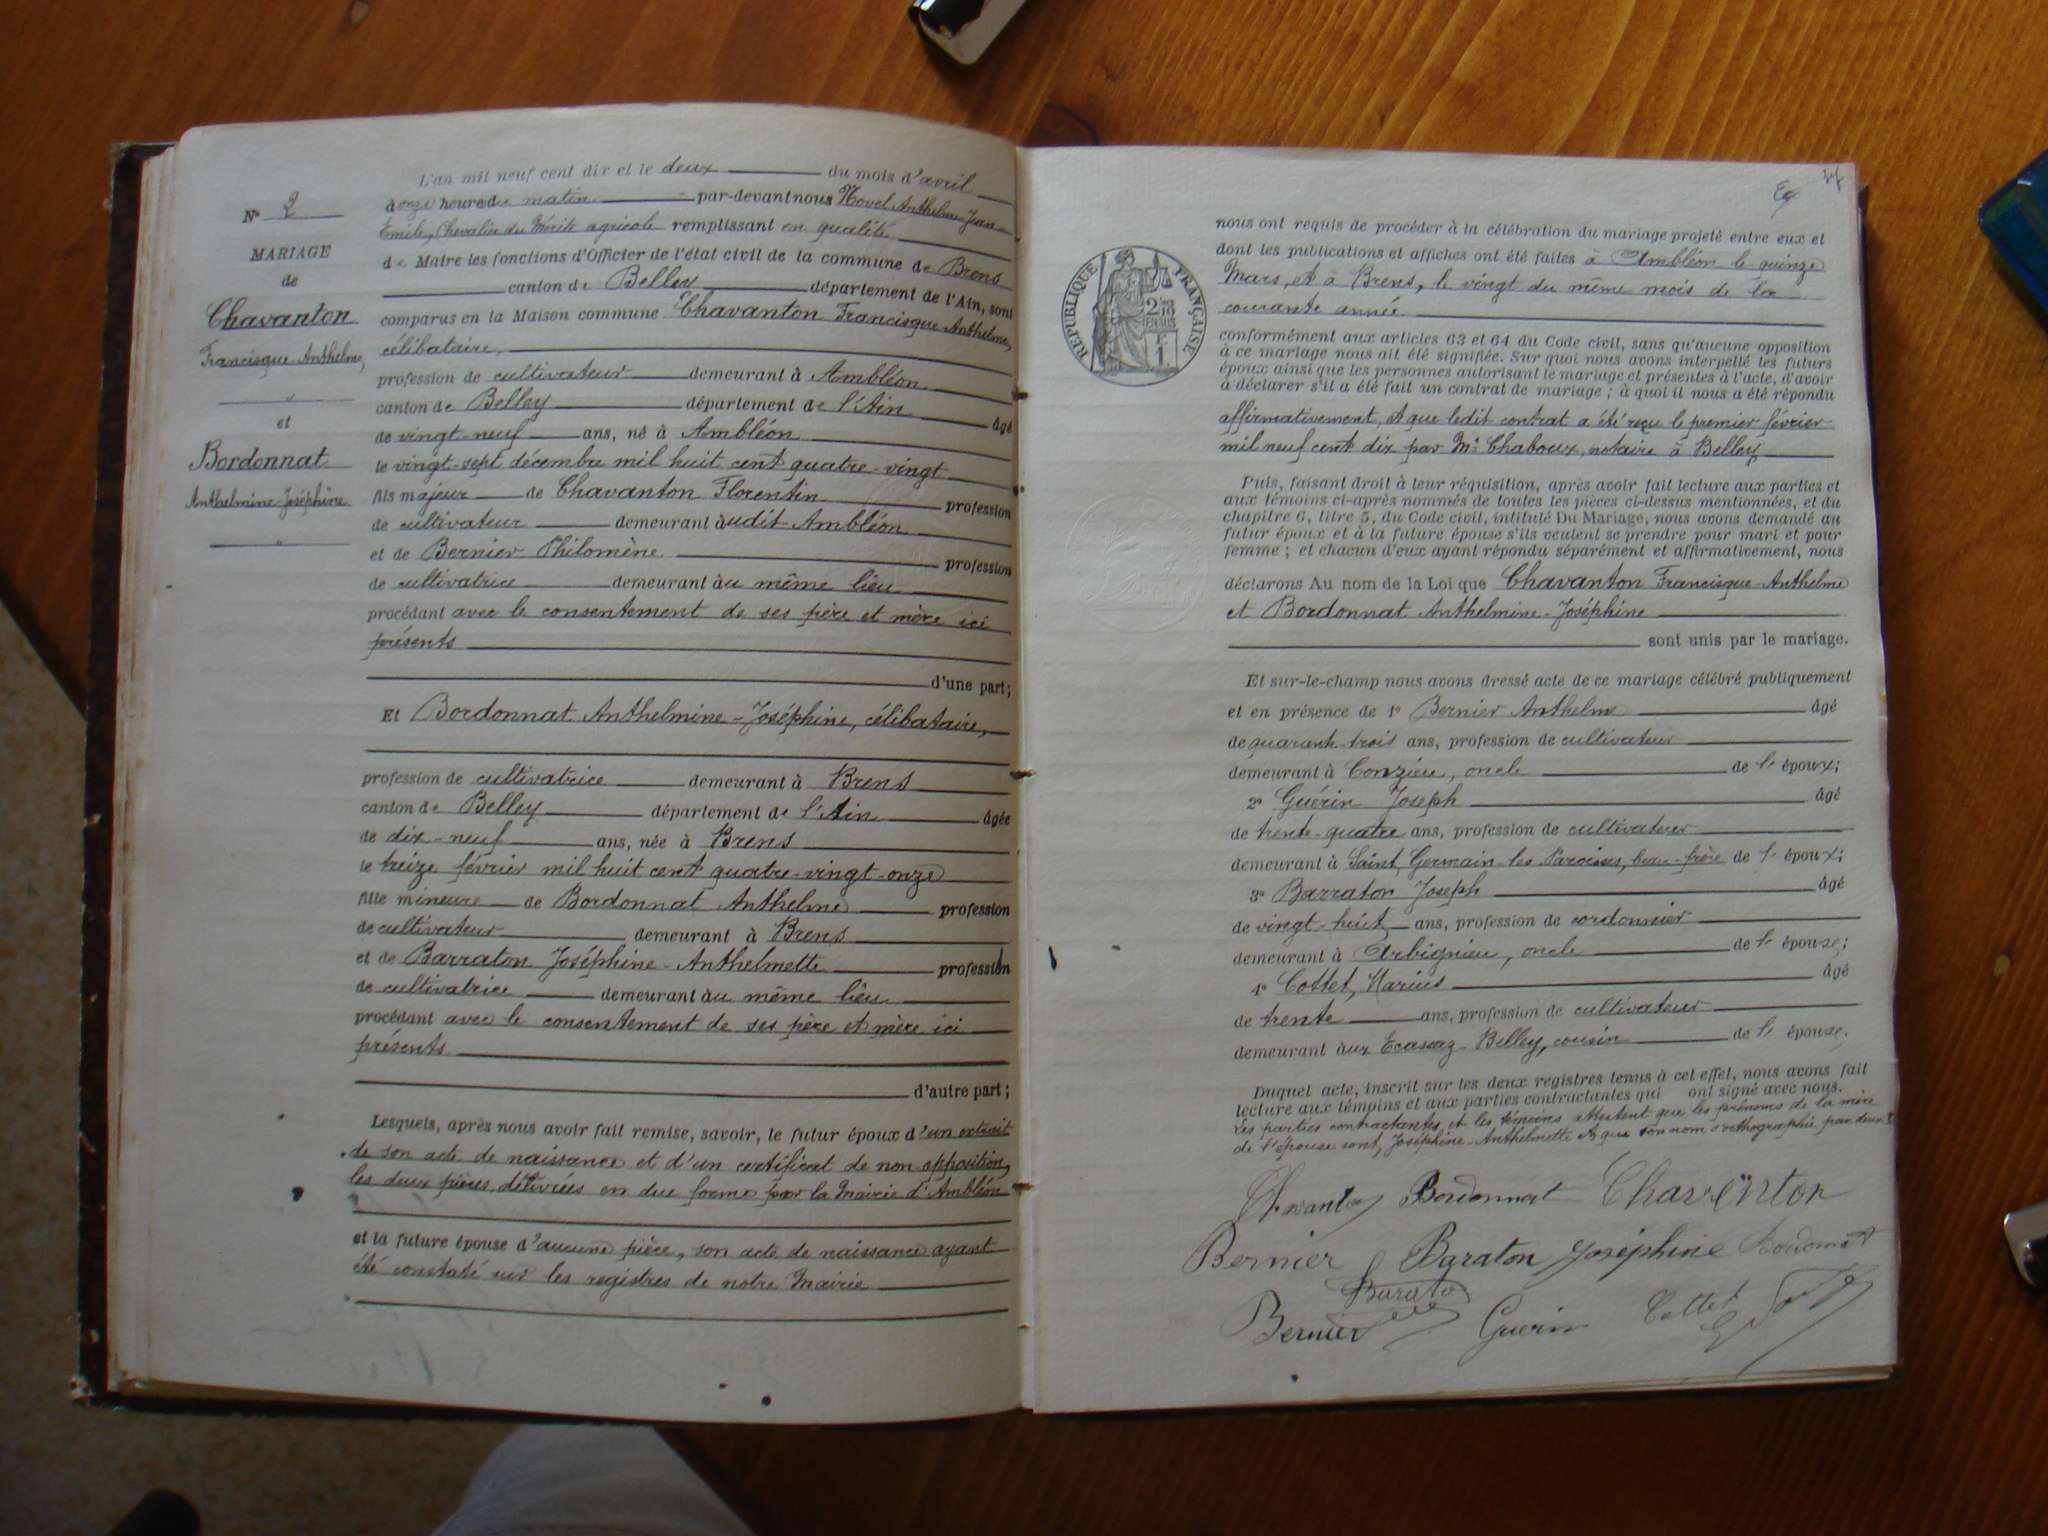 L'an mil neuf cent dix et le deux du mois d'avril
à onze heures du matin par-devant nous Novel Anthelme-Jean-
Emile, Chevalier du Mérite agricole remplissant en qualité
de Maire les fonctions d'Officier de l'état civil de la commune de Brens
canton de Belley département de l'Ain, sont
comparus en la Maison commune Chavanton Francisque-Anthelme,
célibataire,
profession de cultivateur demeurant à Ambléon
canton de Belley département de l'Ain âgé
de vingt-neuf ans, né à Ambléon
le vingt-sept décembre mil huit cent quatre-vingt
fils majeur de Chavanton Florentin profession
de cultivateur demeurant audit Ambléon
et de Bernier Philomène profession
de cultivatrice demeurant au même lieu
procédant avec le consentement de ses père et mère ici
présents
d'une part;
Et Bordonnat Anthelmine-Joséphine, célibataire,
profession de cultivatrice demeurant à Brens
canton de Belley département de l'Ain âgée
de dix-neuf ans, née à Brens
le treize février mil huit cent quatre-vingt-onze
fille mineure de Bordonnat Anthelme profession
de cultivateur demeurant à Brens
et de Barraton Joséphine-Anthelmette profession
de cultivatrice demeurant au même lieu
procédant avec le consentement de ses père et mère ici
présents
d'autre part;
Lesquels, après nous avoir fait remise, savoir, le futur époux d'un extrait
de son acte de naissance et d'un certificat de non opposition,
les deux pièces délivrées en due forme par la Mairie d'Ambléon
et la future épouse d'aucune pièce, son acte de naissance ayant
été constaté sur les registres de notre Mairie
N° 2
MARIAGE
de
Chavanton
Francisque-Anthelme,
et
Bordonnat
Anthelmine-Joséphine
RÉPUBLIQUE FRANÇAISE
2/10 EN SUS
1F
nous ont requis de procéder à la célébration du mariage projeté entre eux et
dont les publications et affiches ont été faites à Ambléon le quinze
Mars, et à Brens, le vingt du même mois de la
courante année
conformément aux articles 63 et 64 du Code civil, sans qu'aucune opposition
à ce mariage nous ait été signifiée. Sur quoi nous avons interpellé les futurs
époux ainsi que les personnes autorisant le mariage et présentes à l'acte, d'avoir
à déclarer s'il a été fait un contrat de mariage ; à quoi il nous a été répondu
affirmativement, et que ledit contrat a été reçu le premier février
mil neuf cent dix par Me Chaboux, notaire à Belley
Puis, faisant droit à leur réquisition, après avoir fait lecture aux parties et
aux témoins ci-après nommés de toutes les pièces ci-dessus mentionnées, et du
chapitre 6, titre 5, du Code civil, intitulé Du Mariage, nous avons demandé au
futur époux et à la future épouse s'ils veulent se prendre pour mari et pour
femme ; et chacun d'eux ayant répondu séparément et affirmativement, nous
déclarons Au nom de la Loi que Chavanton Francisque-Anthelme
et Bordonnat Anthelmine-Joséphine
sont unis par le mariage.
Et sur-le-champ nous avons dressé acte de ce mariage célébré publiquement
et en présence de 1° Bernier Anthelme âgé
de quarante-trois ans, profession de cultivateur
demeurant à Conzieu, oncle de l' époux;
2° Guérin Joseph âgé
de trente-quatre ans, profession de cultivateur
demeurant à Saint-Germain-les-Paroisses, beau-frère de l' époux;
3° Barraton Joseph âgé
de vingt-huit ans, profession de cordonnier
demeurant à Arbignieu, oncle de l' épouse;
4° Cottet, Marius âgé
de trente ans, profession de cultivateur
demeurant aux Ecassaz-Belley, cousin de l' épouse.
Duquel acte, inscrit sur les deux registres tenus à cet effet, nous avons fait
lecture aux témoins et aux parties contractantes qui ont signé avec nous.
Les parties contractantes, et les témoins attestent que les prénoms de la mère
de l'épouse sont, Joséphine-Anthelmette et que son nom s'orthographie par deux r
Chavanton Bordonnat Chavanton
Bernier Baraton Joséphine Bordonnat
Baraton
Bernier Guerin Cottet